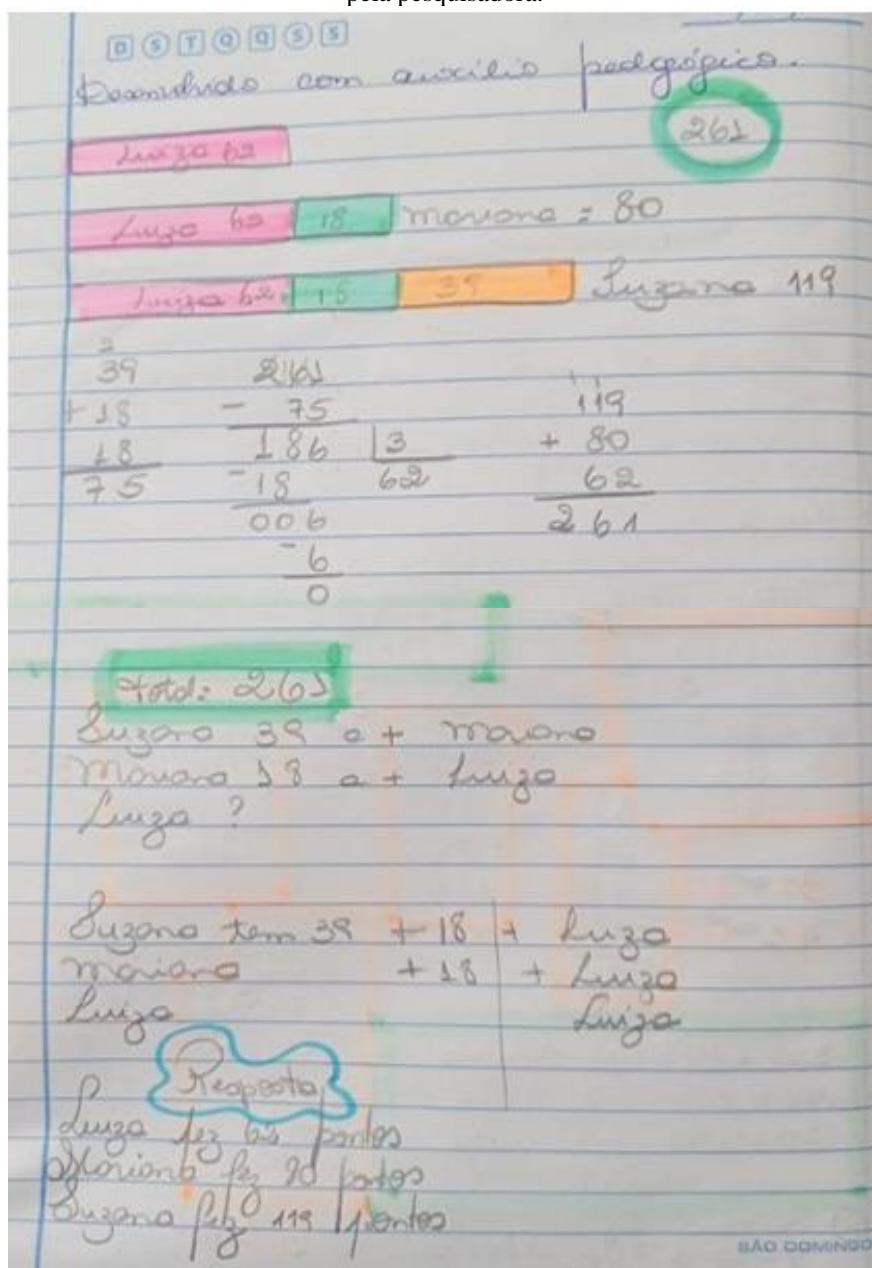 pela pesquisadora.
D S T Q Q S S
Desenvolvido com auxílio pedagógico.
261
Luiza 62
Luiza 62 18 Mariana = 80
Luiza 62 18 39 Suzana 119
2
39 261 119
+ 18 - 75 + 80
18 186 3 62
75 - 18 62 261
006
- 6
0
total: 261
Suzana 39 a + Mariana
Mariana 18 a + Luiza
Luiza ?
Suzana tem 39 + 18 + Luiza
Mariana + 18 + Luiza
Luiza Luiza
Resposta
Luiza fez 62 pontos
Mariana fez 80 pontos
Suzana fez 119 pontos
SÃO DOMINGO